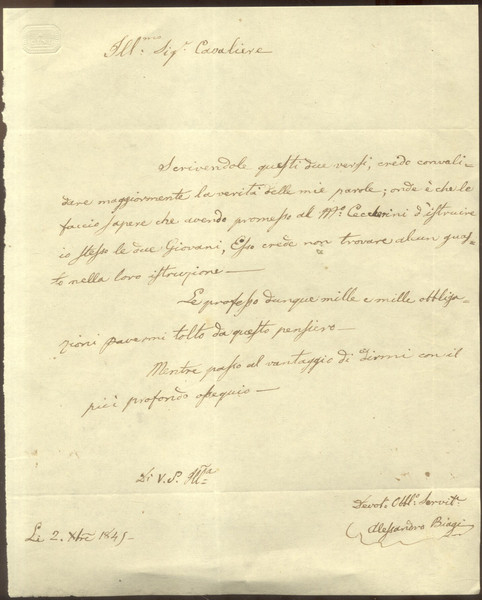 Ill.mo Sig.r Cavaliere
Scrivendole questi due versi, credo convali-
dare maggiormente la verità delle mie parole; onde è che le
faccio sapere che avendo promesso al M.o Ceccherini d'istruire
io stesso le due Giovani, Esso crede non trovare alcun gua-
to nella loro istruzione —
Le professo dunque mille e mille obbliga-
zioni d'avermi tolto da questo pensiero —
Mentre passo al vantaggio di dirmi con il
più profondo ossequio —
Di V. S. Ill.ma
Devot. Obbl. Servit.e
Alessandro Biagi
Li 2. Xbre 1845 —